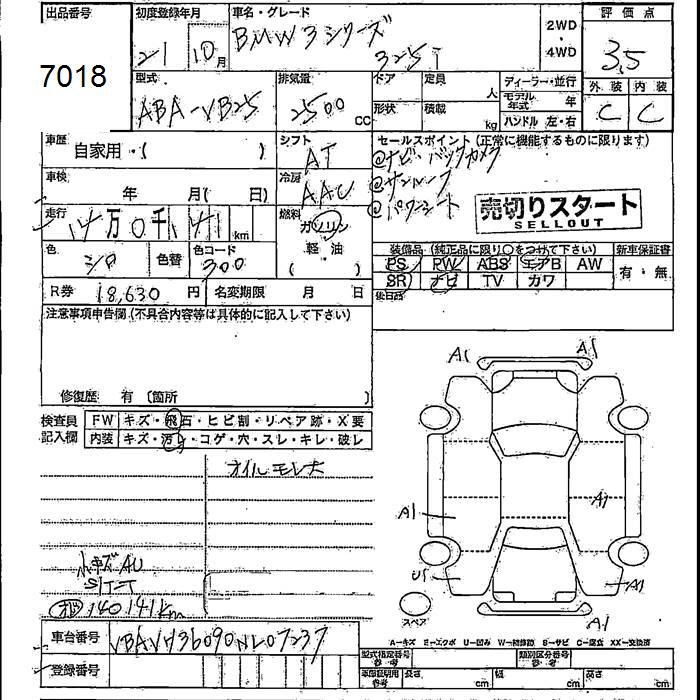 出品番号
初度登録年月
車名・グレード
2WD
・
4WD
評価点
7018
21 10月
BMW 3シリーズ
325i
3.5
型式
ABA-VB25
排気量
2500 CC
ドア
定員 人
形状
積載 kg
ディーラー・並行
モデル年式 年
ハンドル 左・右
外装 内装
C C
車歴
自家用・( )
シフト
AT
セールスポイント (正常に機能するものに限ります)
@ナビ・バックカメラ
@サンルーフ
@パワーシート
車検
年 月( 日)
冷房
AAC
売切りスタート
SELLOUT
走行
14万0千141km
燃料
ガソリン
軽・油
( )
色
シロ
色替
色コード
300
装備品 (純正品に限り○をつけて下さい)
新車保証書
PS PW ABS エアB AW
SR ナビ TV カワ
有・無
R券 18,630 円
名変期限 月 日
後日品
注意事項申告欄 (不具合内容等は具体的に記入して下さい)
修復歴 有 〔箇所 〕
検査員
記入欄
FW キズ・飛石・ヒビ割・リペア跡・X要
内装 キズ・汚れ・コゲ・穴・スレ・キレ・破レ
オイルモレ大
小キズAU
シート
140141km
A1 A1
A1 A1
U1 A1
A1
スペア
A=キズ E=エクボ U=凹み W=補修跡 S=サビ C=腐食 XX=交換済
車台番号
登録番号
型式指定番号
参考
類別区分番号
参考
車庫証明用
参考
長さ cm
幅 cm
高さ cm